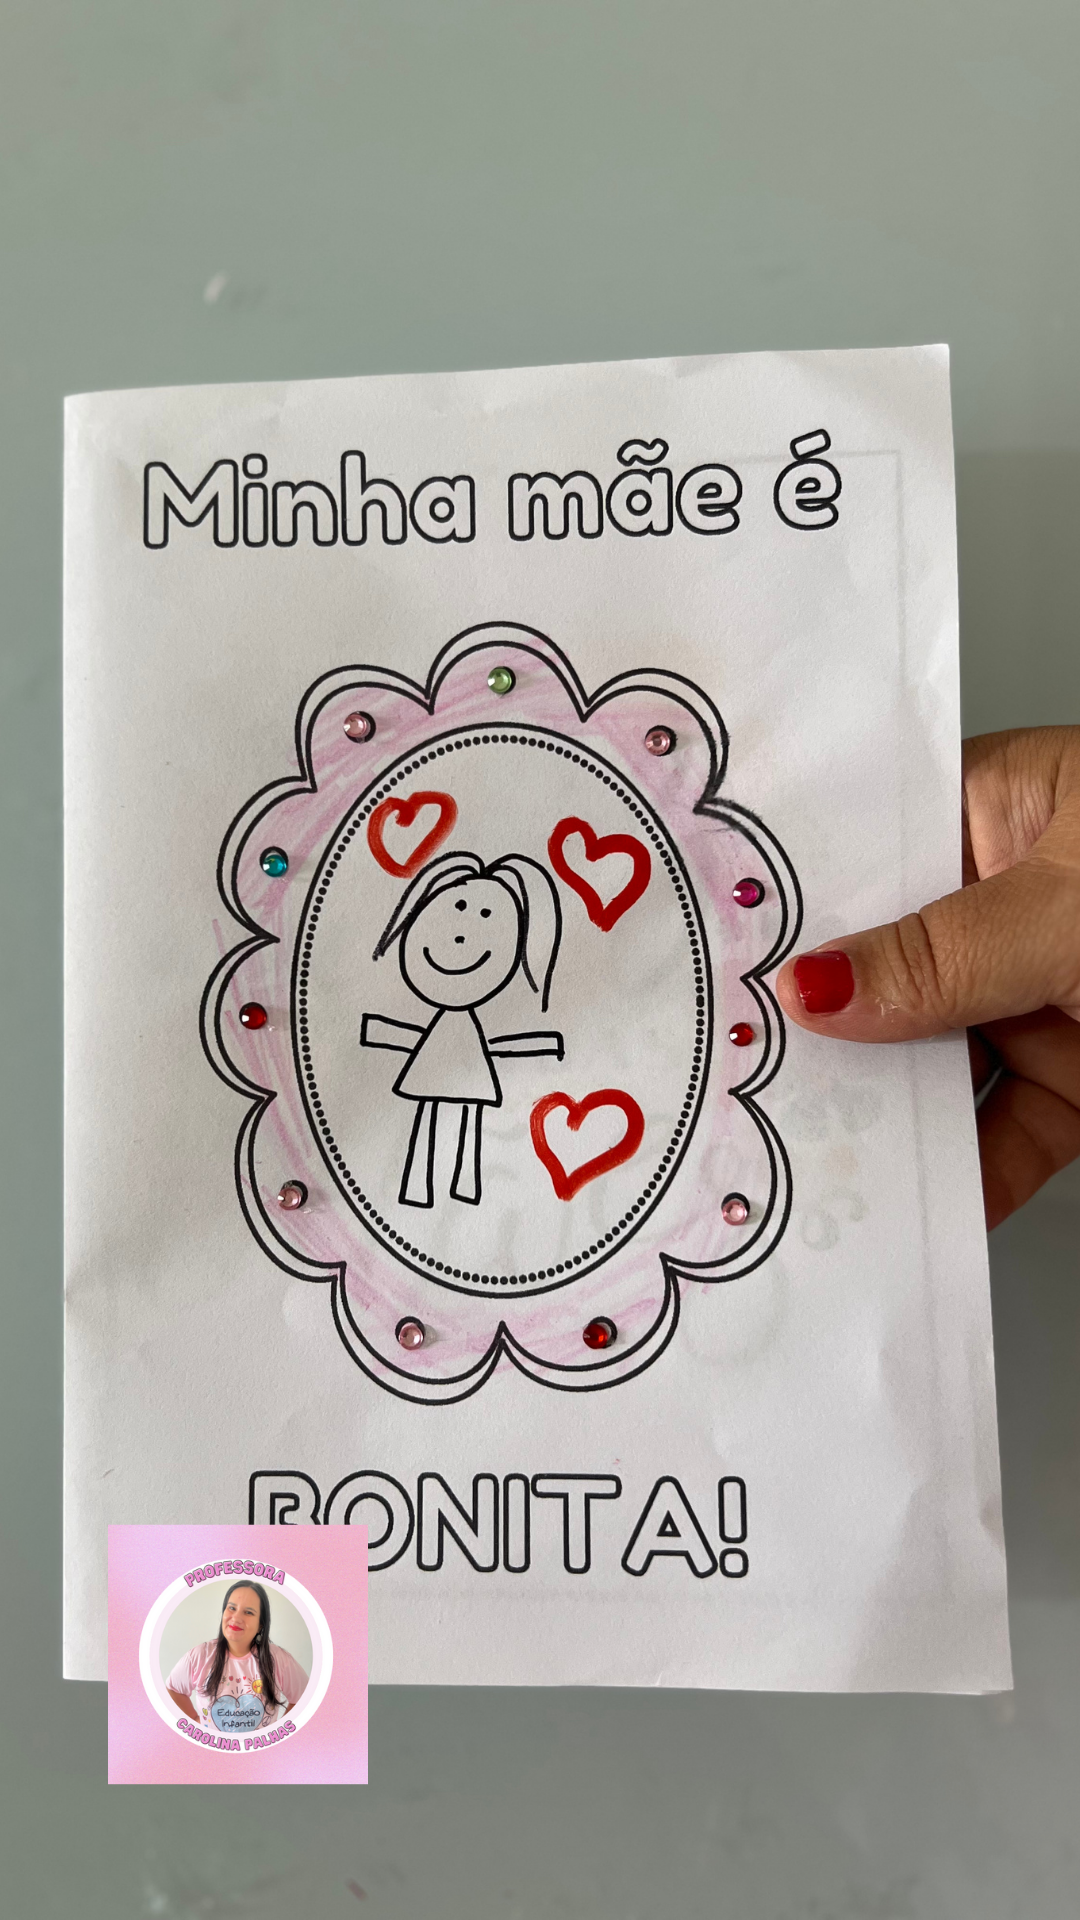 Minha mãe é
BONITA!
PROFESSORA
Educação
Infantil
CAROLINA PALHAS